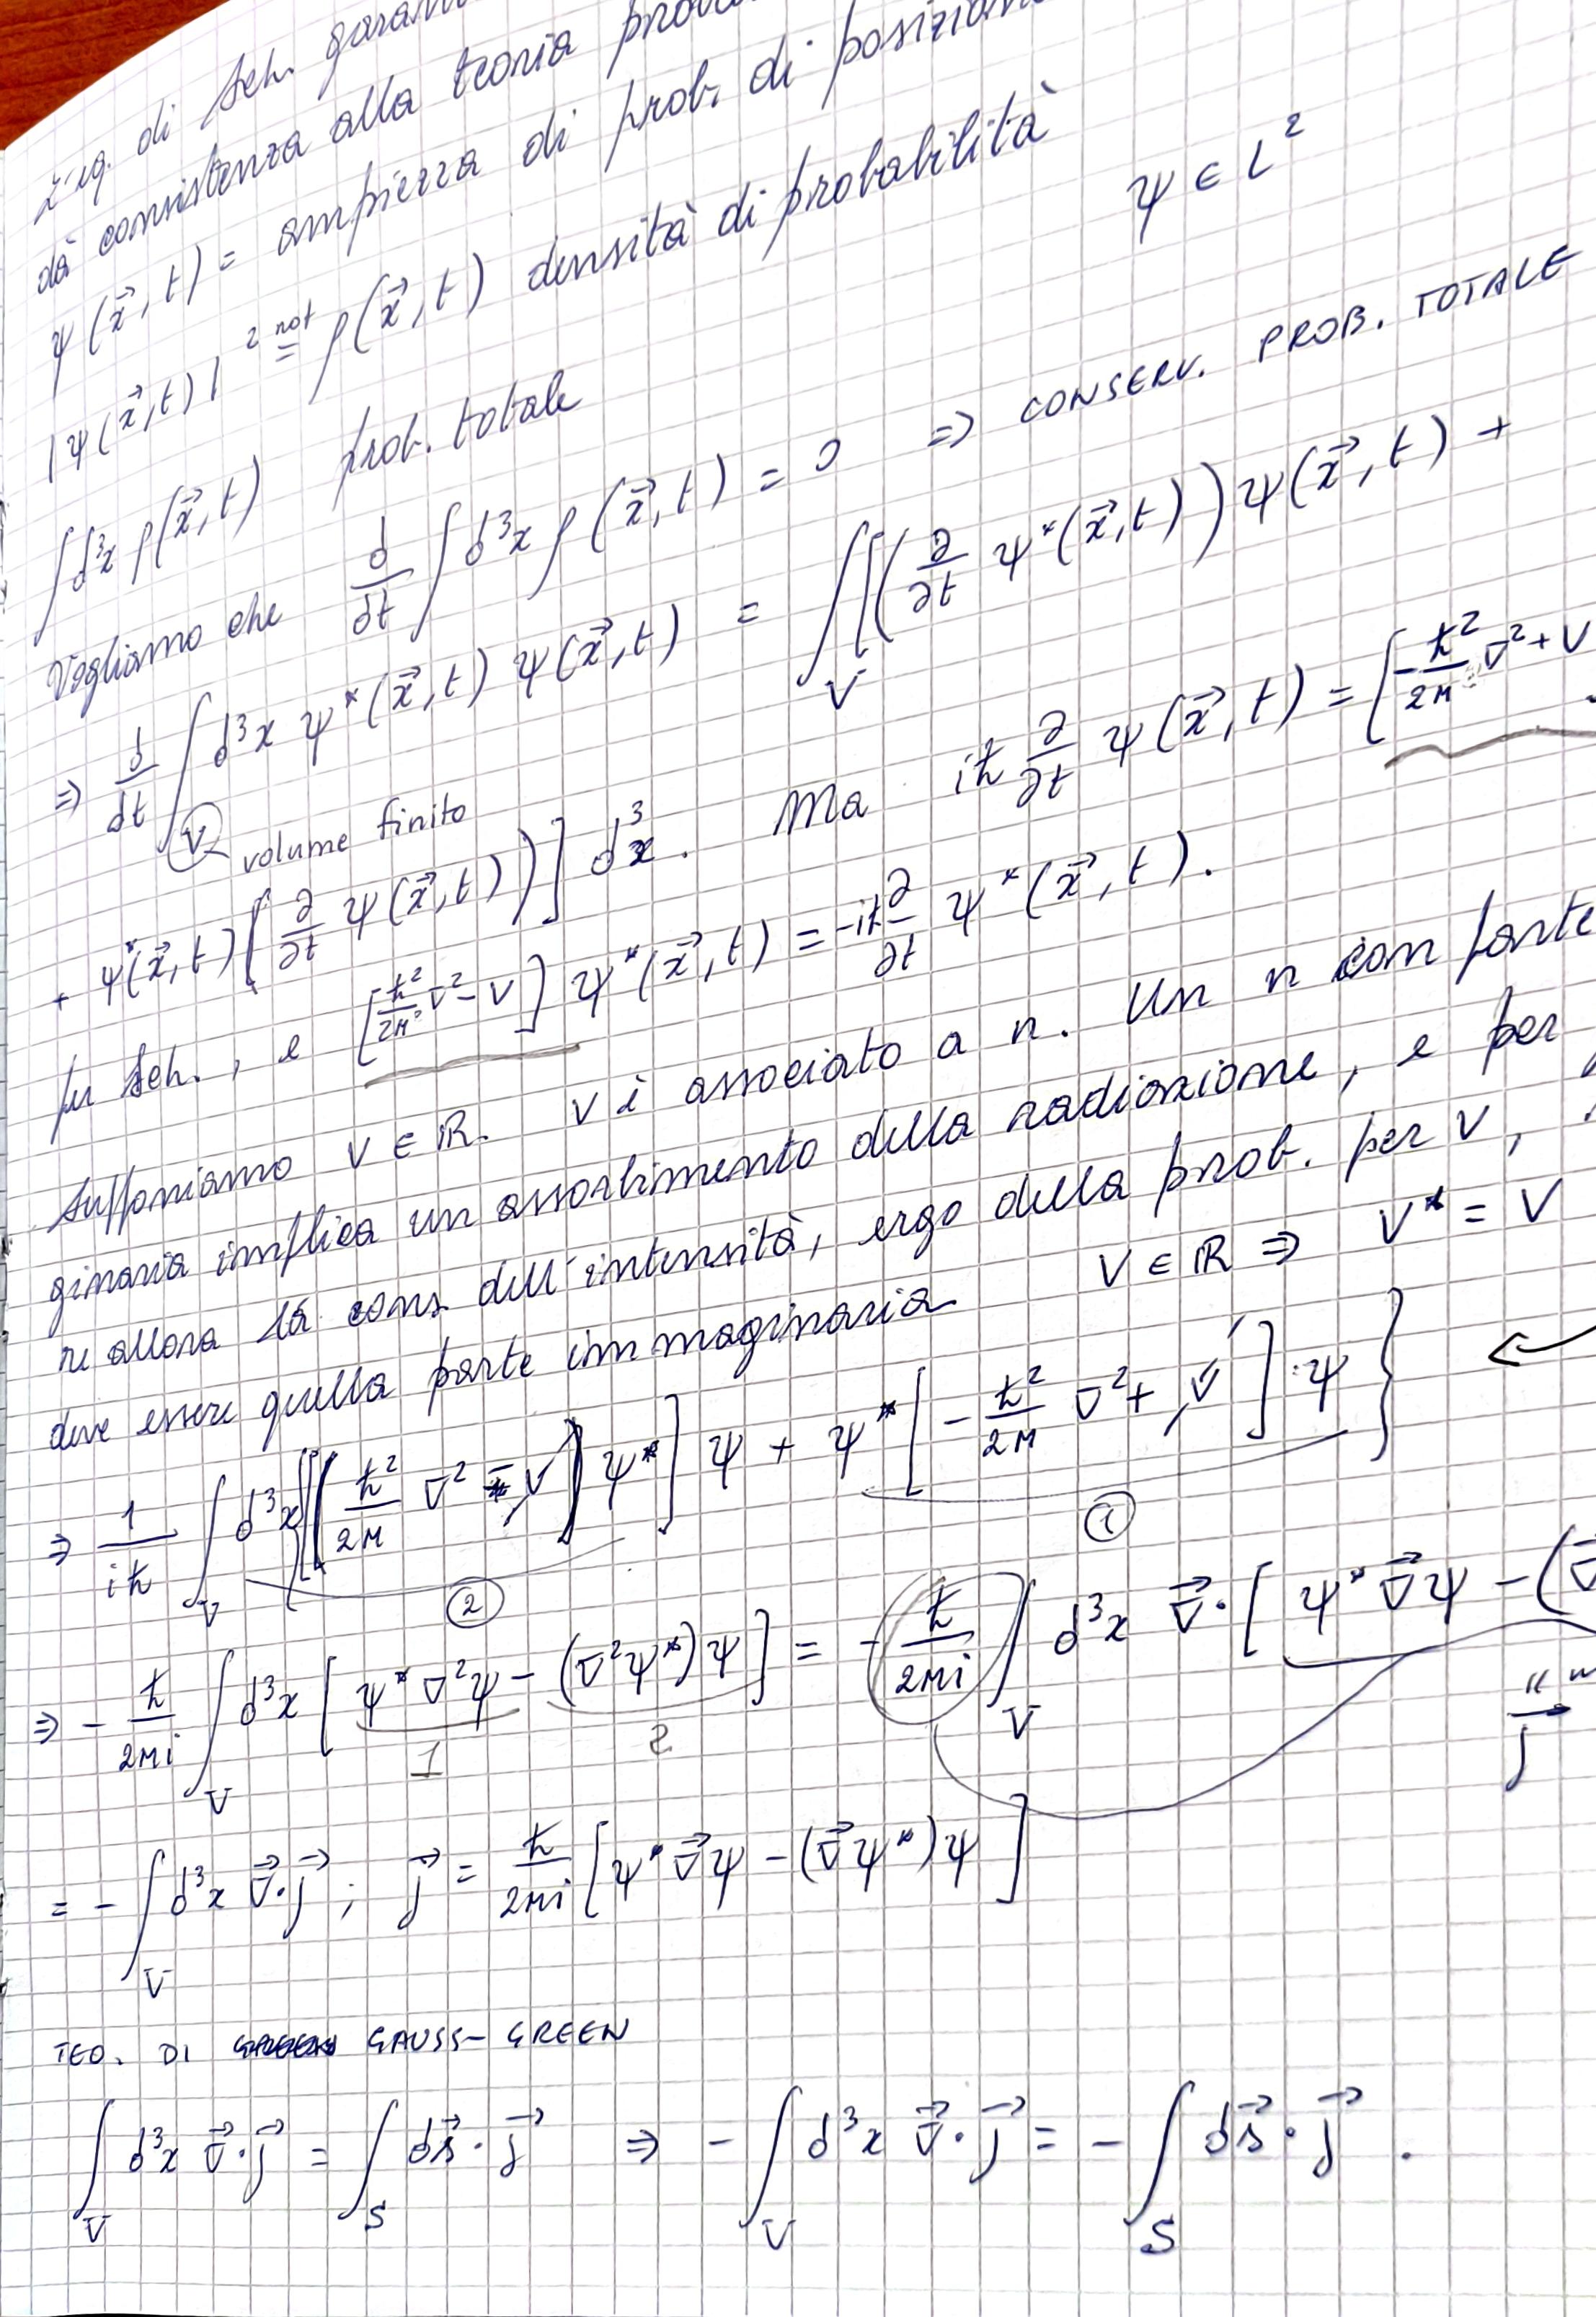 L'eq. di Sch.
dà consistenza alla teoria
ψ(x⃗,t) = ampiezza di prob. di
|ψ(x⃗,t)|² =not ρ(x⃗,t) densità di probabilità ψ ∈ L²
∫d³x ρ(x⃗,t) prob. totale
Vogliamo che d/dt ∫d³x ρ(x⃗,t) = 0 ⇒ CONSERV. PROB. TOTALE
⇒ d/dt ∫_V d³x ψ*(x⃗,t) ψ(x⃗,t) = ∫_V [(∂/∂t ψ*(x⃗,t)) ψ(x⃗,t) +
volume finito
+ ψ*(x⃗,t) (∂/∂t ψ(x⃗,t))] d³x. Ma iħ ∂/∂t ψ(x⃗,t) = [-ħ²/2M ∇² + V
per Sch., e [ħ²/2M ∇² - V] ψ*(x⃗,t) = -iħ ∂/∂t ψ*(x⃗,t).
Supponiamo V ∈ ℝ. V è associato a n. Un n con parte
ginaria implica un assorbimento della radiazione, e per
re allora la cons. dell'intensità, ergo della prob. per V,
deve essere quella parte immaginaria V ∈ ℝ ⇒ V* = V
⇒ 1/iħ ∫_V d³x {[(ħ²/2M ∇² - V) ψ*] ψ + ψ* [-ħ²/2M ∇² + V] ψ} ←
② ①
⇒ - ħ/2Mi ∫_V d³x [ψ* ∇²ψ - (∇²ψ*)ψ] = - ħ/2Mi ∫_V d³x ∇⃗·[ψ* ∇⃗ψ - (∇⃗
1 2 " j⃗
= - ∫_V d³x ∇⃗·j⃗ ; j⃗ = ħ/2Mi [ψ* ∇⃗ψ - (∇⃗ψ*)ψ]
TEO. DI GAUSS-GREEN
∫_V d³x ∇⃗·j⃗ = ∫_S ds⃗·j⃗ ⇒ - ∫_V d³x ∇⃗·j⃗ = - ∫_S ds⃗·j⃗ .